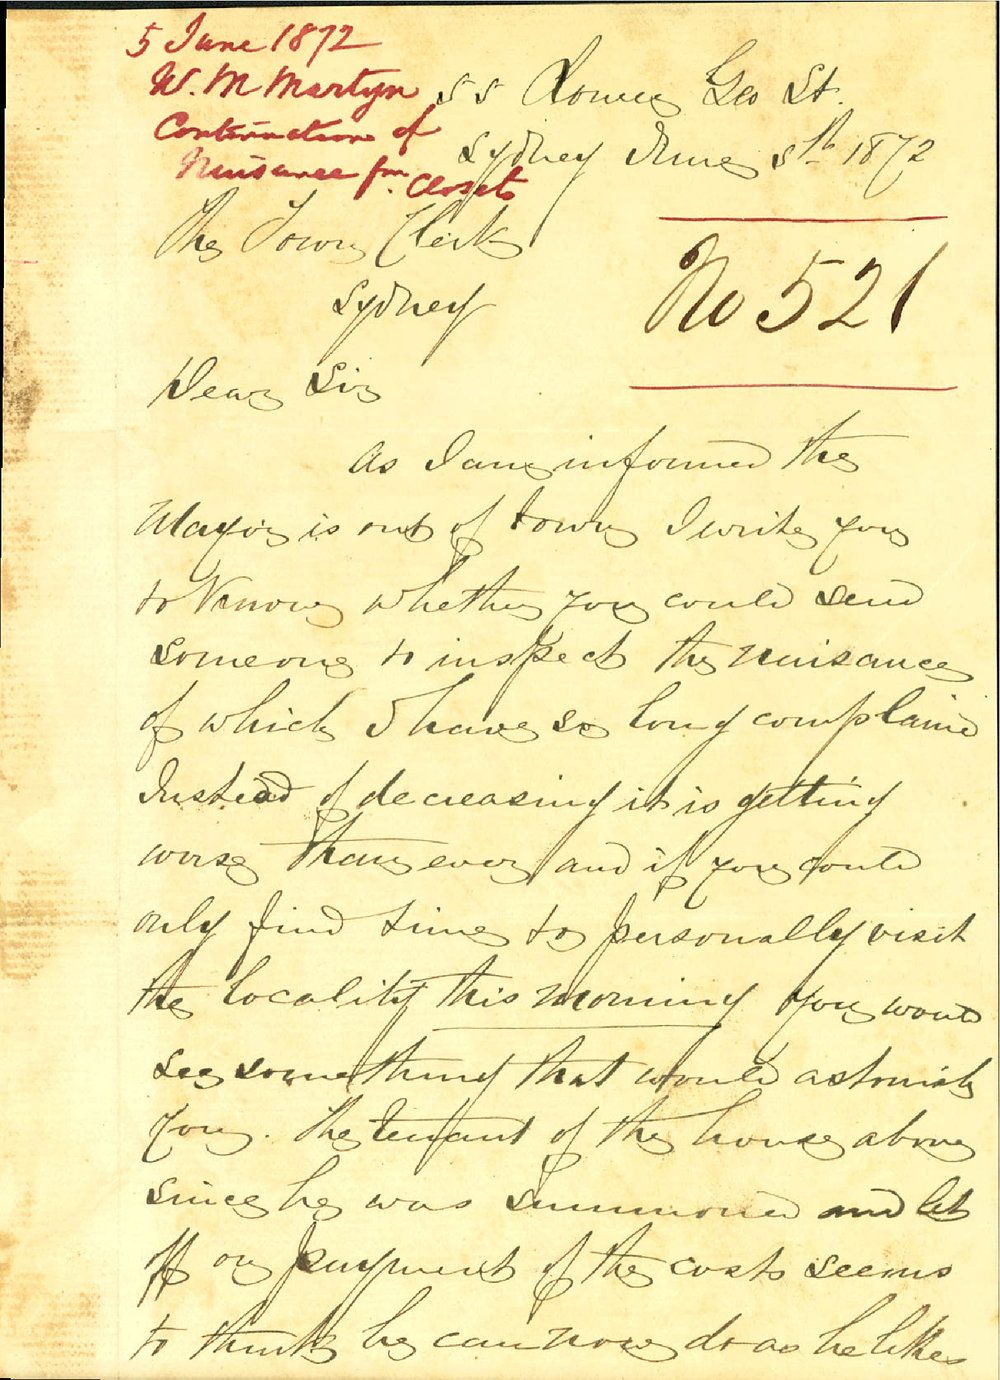 5 June 1872
W. M Martyn
Continuation of
Nuisance fm. Closets
55 Lower Geo St.
Sydney June 5th 1872
The Town Clerk
Sydney
No 521
Dear Sir
As I am informed the
Mayor is out of town I write you
to know whether you could send
someone to inspect the nuisance
of which I have so long complained
Instead of decreasing it is getting
worse than ever and if you could
only find time to personally visit
the locality this morning you would
see something that would astonish
you. The tenant of the house above
since he was summoned and let
off on payment of the costs seems
to think he can now do as he likes